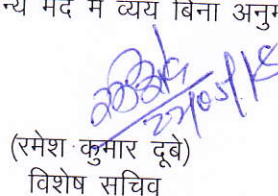 न्य मद में व्यय बिना अनुम
(रमेश कुमार दूबे)
विशेष सचिव